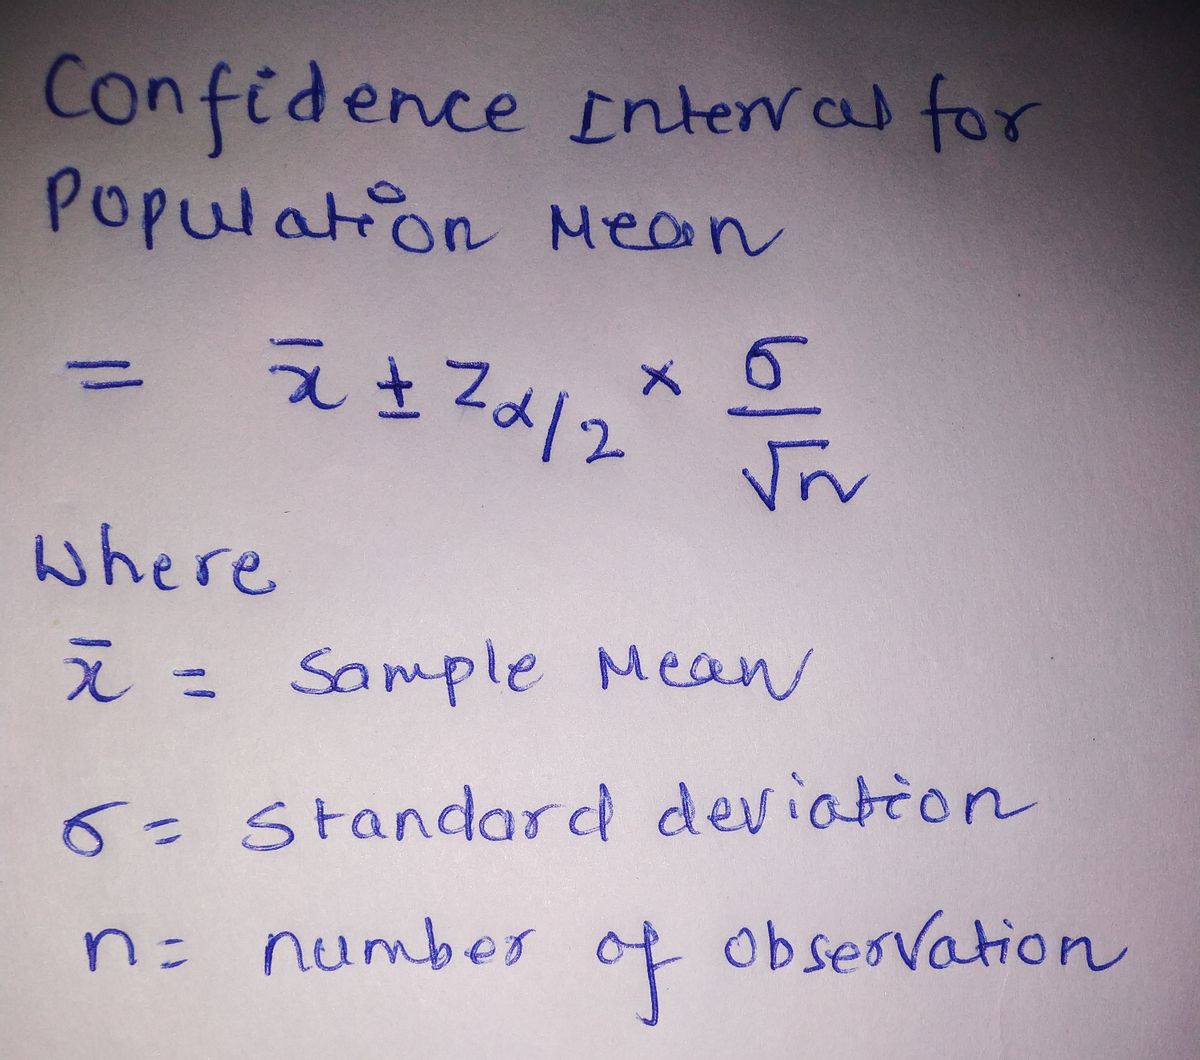 Confidence Interval for
Population Mean
= x̄ ± Zα/2 × σ/√n
Where
x̄ = Sample Mean
σ = Standard deviation
n = number of observation